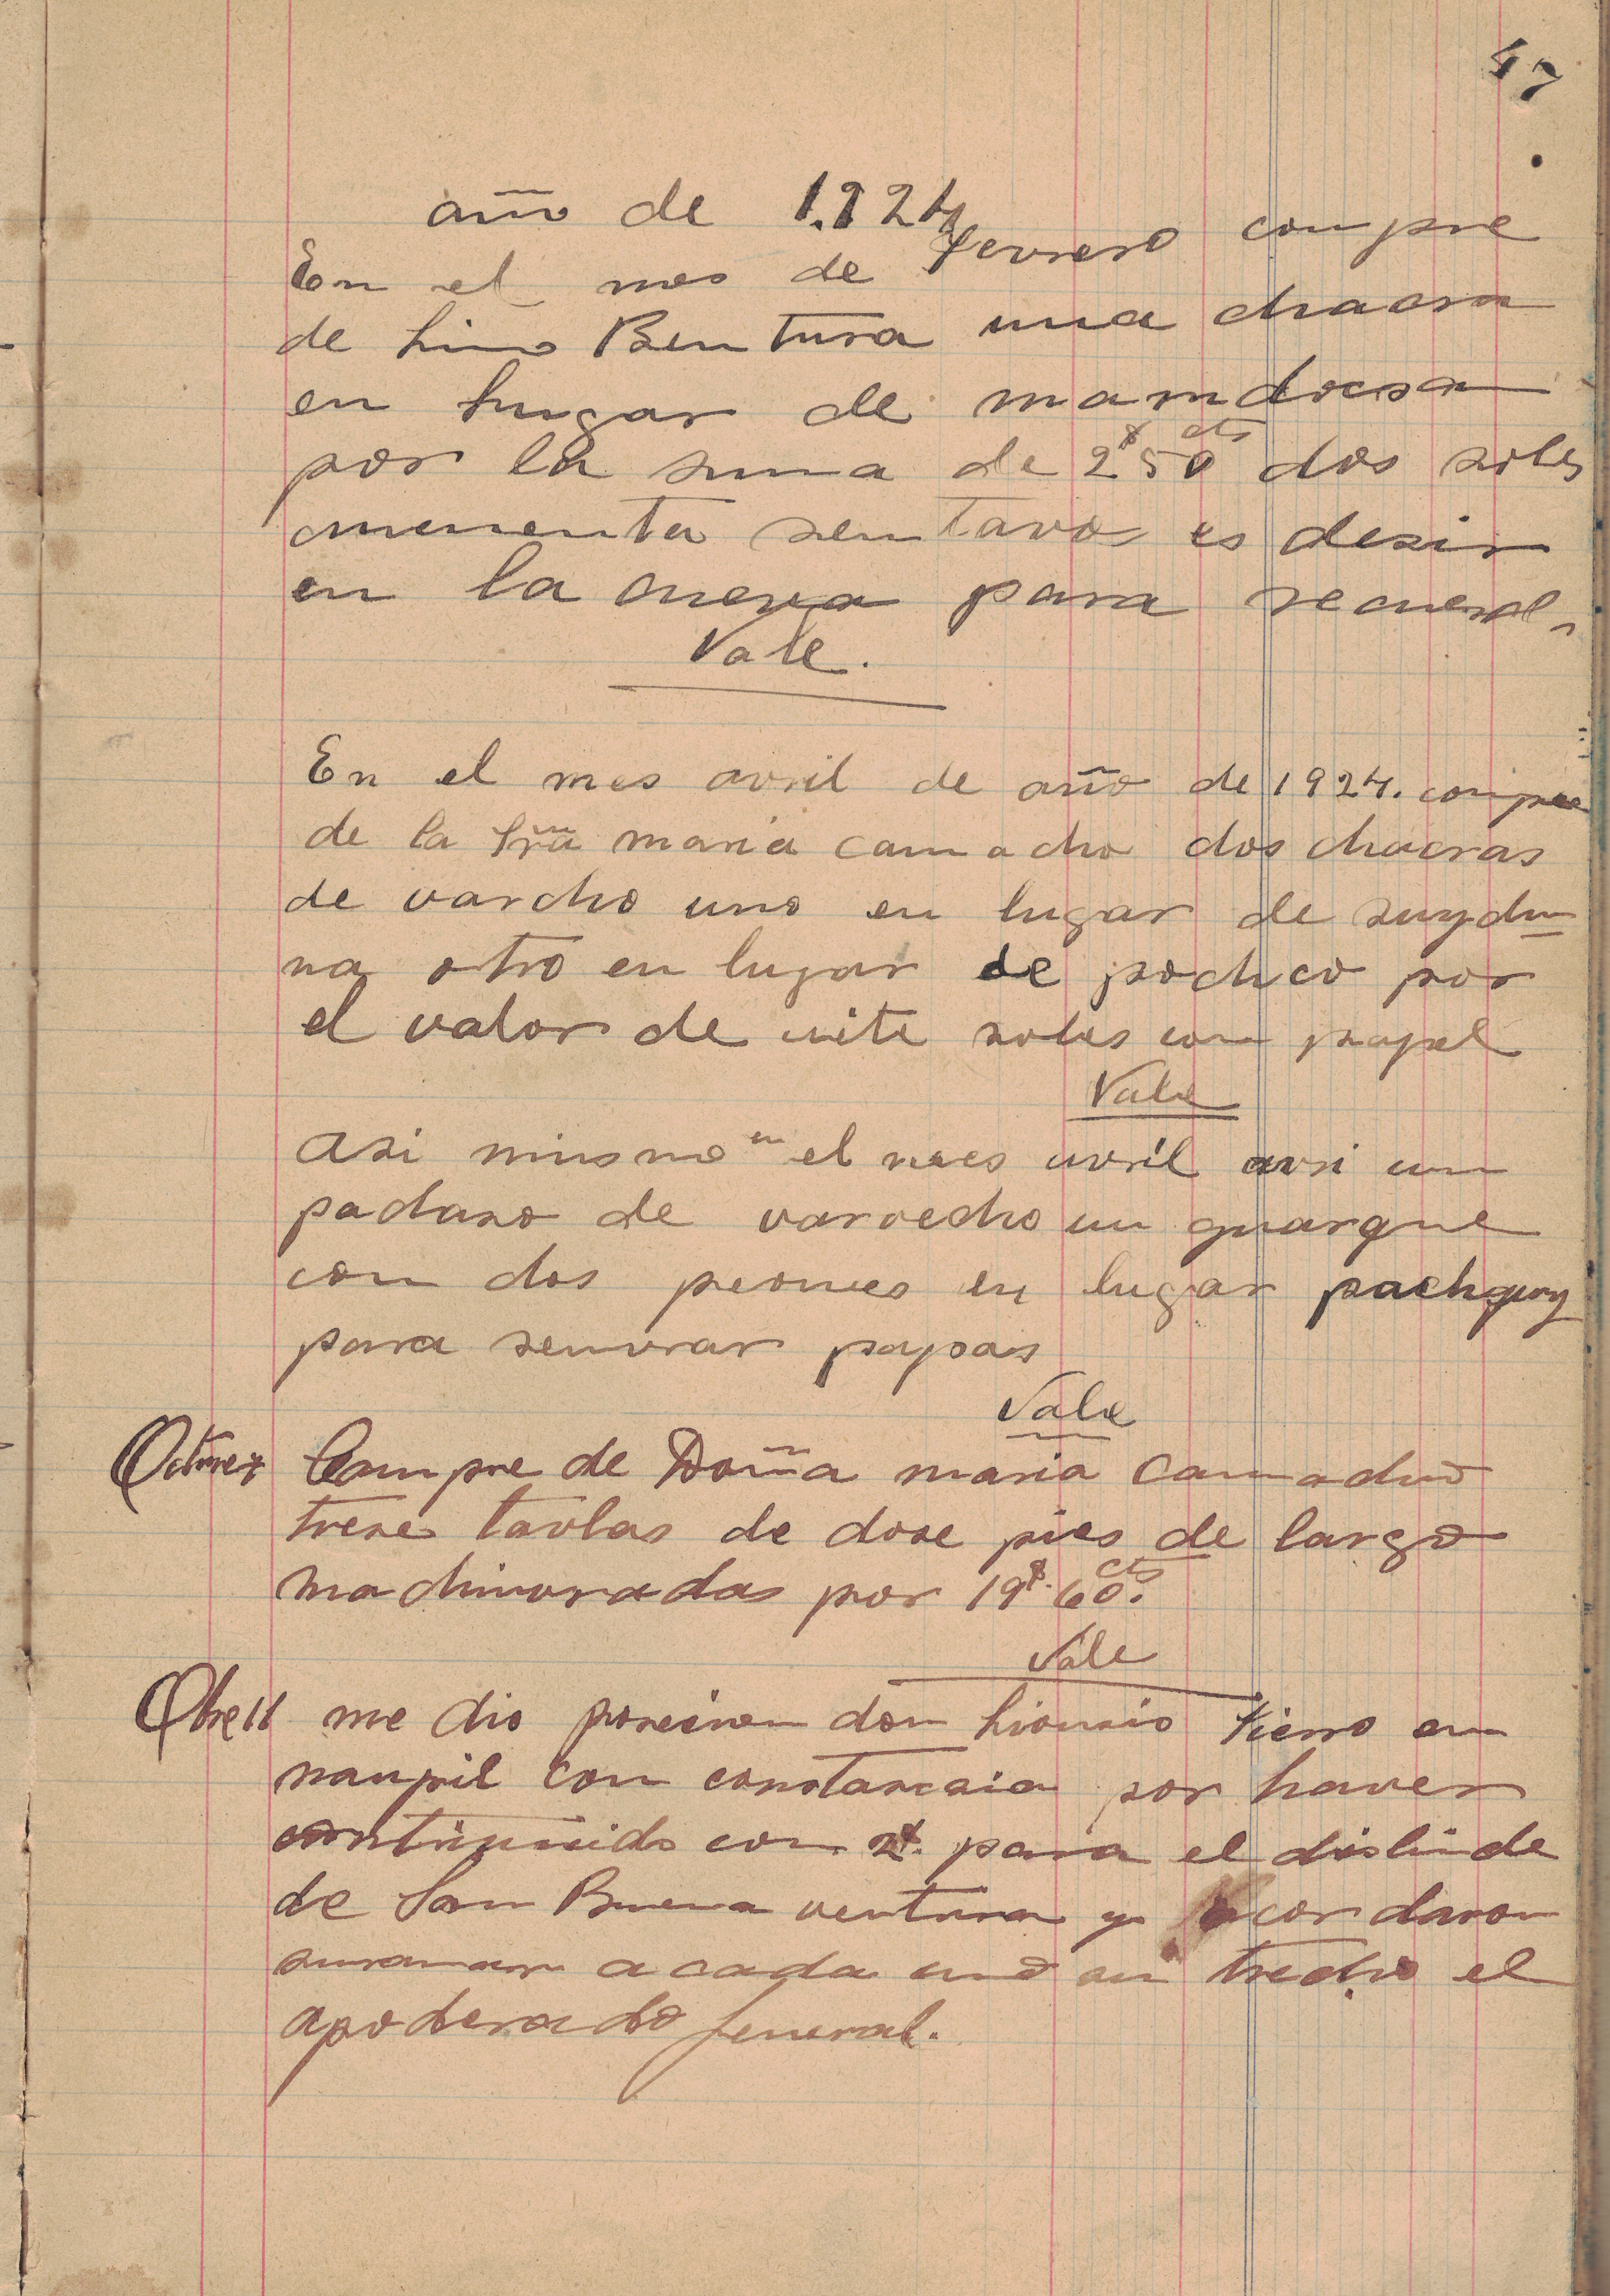 47
año de 1.924
En el mes de Fevrero compre
de Lino Bentura una chacra
en lugar de
por la suma de 2$ 50 cts dos soles
cincuenta sentavos es desir
en la cueva para recuerd
Vale.
En el mes avril de año de 1924. compre
de la Sra maria camacho dos chacras
de varcho uno en lugar de
na otro en lugar de pocheo por
el valor de siete soles con papel
Vale
asi mismo en el mes avril avri un
padaso de varvecho un
con dos peones en lugar
para semvrar papas
Vale
Compre de Doña maria Camacho
trese tavlas de dose pies de largo
machimvradas por 19$. 60 cts.
Vale
me dio posecion don Lionicio Fierro en
naupil con constancia por haver
contrivuido con 2$. para el dislinde
de San Buena ventura y acordaron
a cada uno un trecho el
apoderado Jeneral.